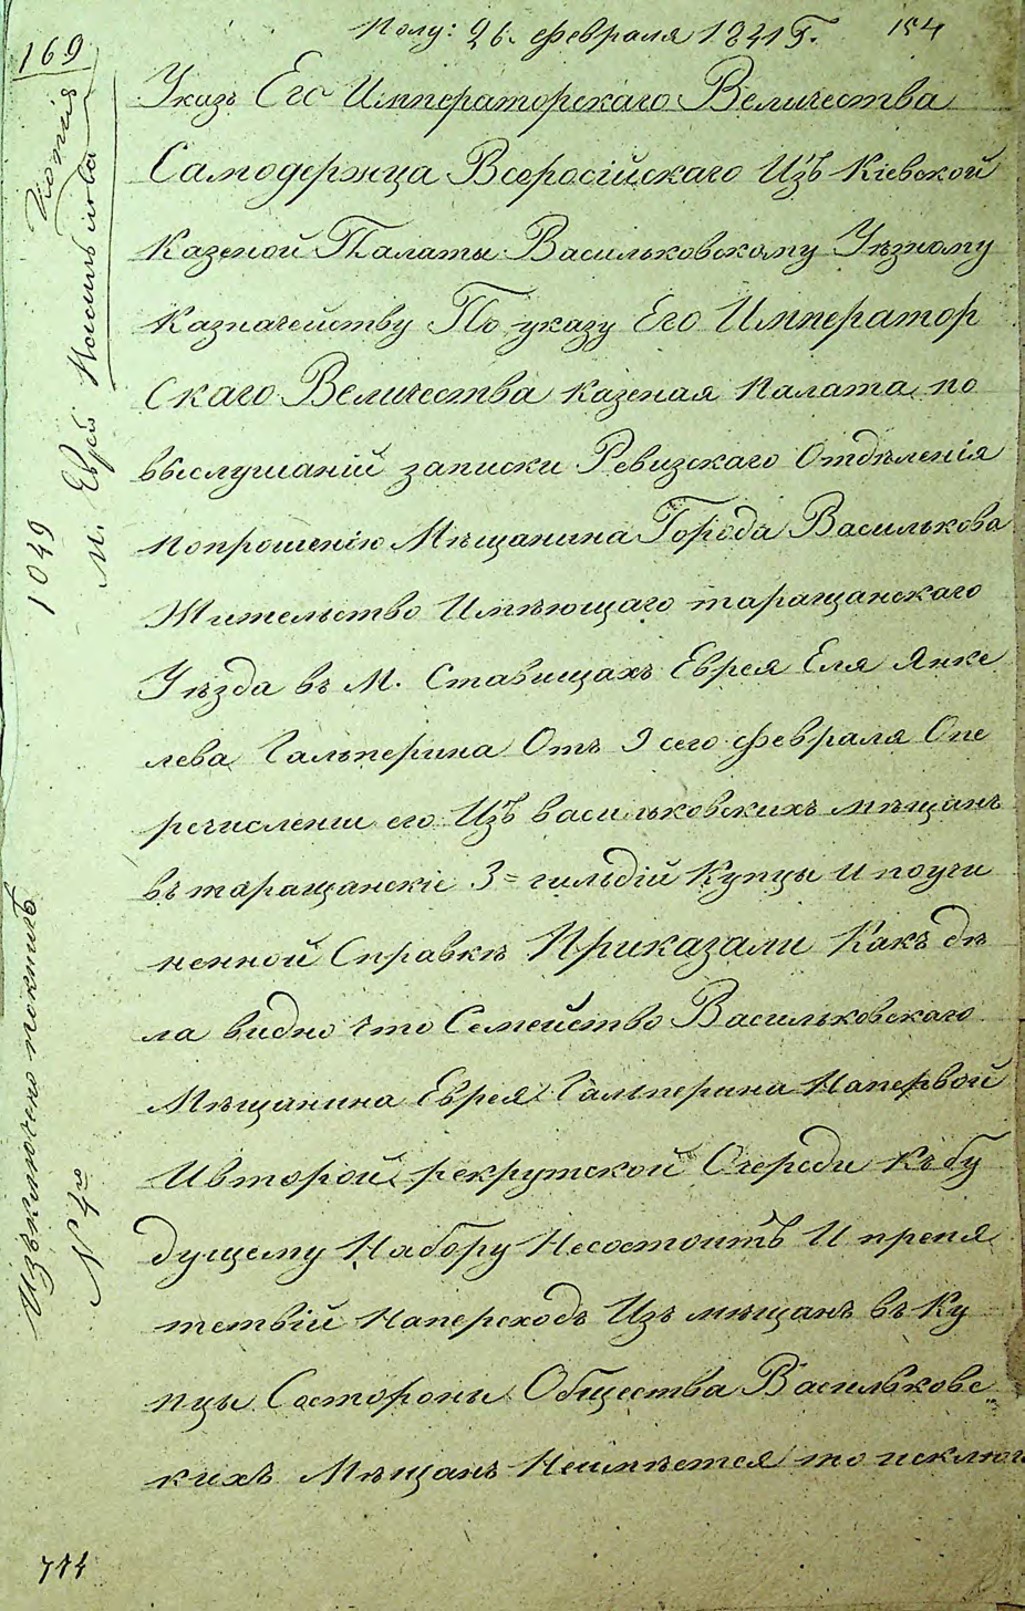 169
Полу: 26. февраля 1841 Г. 154
Указъ Его Императорскаго Величества
Самодержца Всеросійскаго Изъ Кіевской
Казеной Палаты Васильковскому Уѣзному
Казначейству По указу Его Император
Скаго Величества казеная палата по
выслушаній записки Ревизскаго Отдѣленія
попрошенію Мѣщанина Города Василькова
Жительство Имѣющаго таращанскаго
Уѣзда въ М. Ставищахъ Еврея Еля Янке
лева Гальперина Отъ 9 сего февраля Опе
речислении его Изъ васильковскихъ мѣщанъ
въ таращанскіе 3= гильдій Купцы И поучи
ненной Справкѣ Приказали Какъ дѣ
ла видно что Семейство Васильковскаго
Мѣщанина Еврея Гальперина Напервой
Ивторой рекрутской Очереди къ бу
дущему Набору Несостоитъ И препя
тствій Наперсходъ Изъ мѣщанъ въ Ку
пцы Состороны Общества Васильковс
кихъ Мѣщанъ Неимѣется то исключ
Копія
М. Еврей
1049
Изъключено
N 4го
774